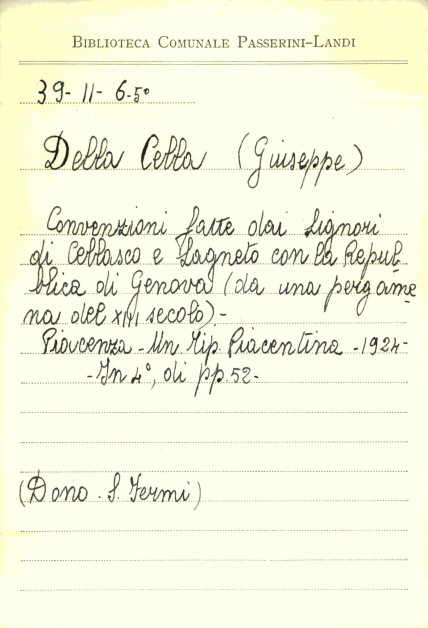 BIBLIOTECA COMUNALE PASSERINI-LANDI
39- 11- 6-5°
Della Cella (Giuseppe)
Convenzioni fatte dai Signori
di Cellasco e Lagneto con la Repub_
blica di Genova (da una pergame_
na del XIII secolo).-
Piacenza - Un. Tip. Piacentina - 1924-
-In 4°, di pp. 52-
(Dono . S. Fermi)